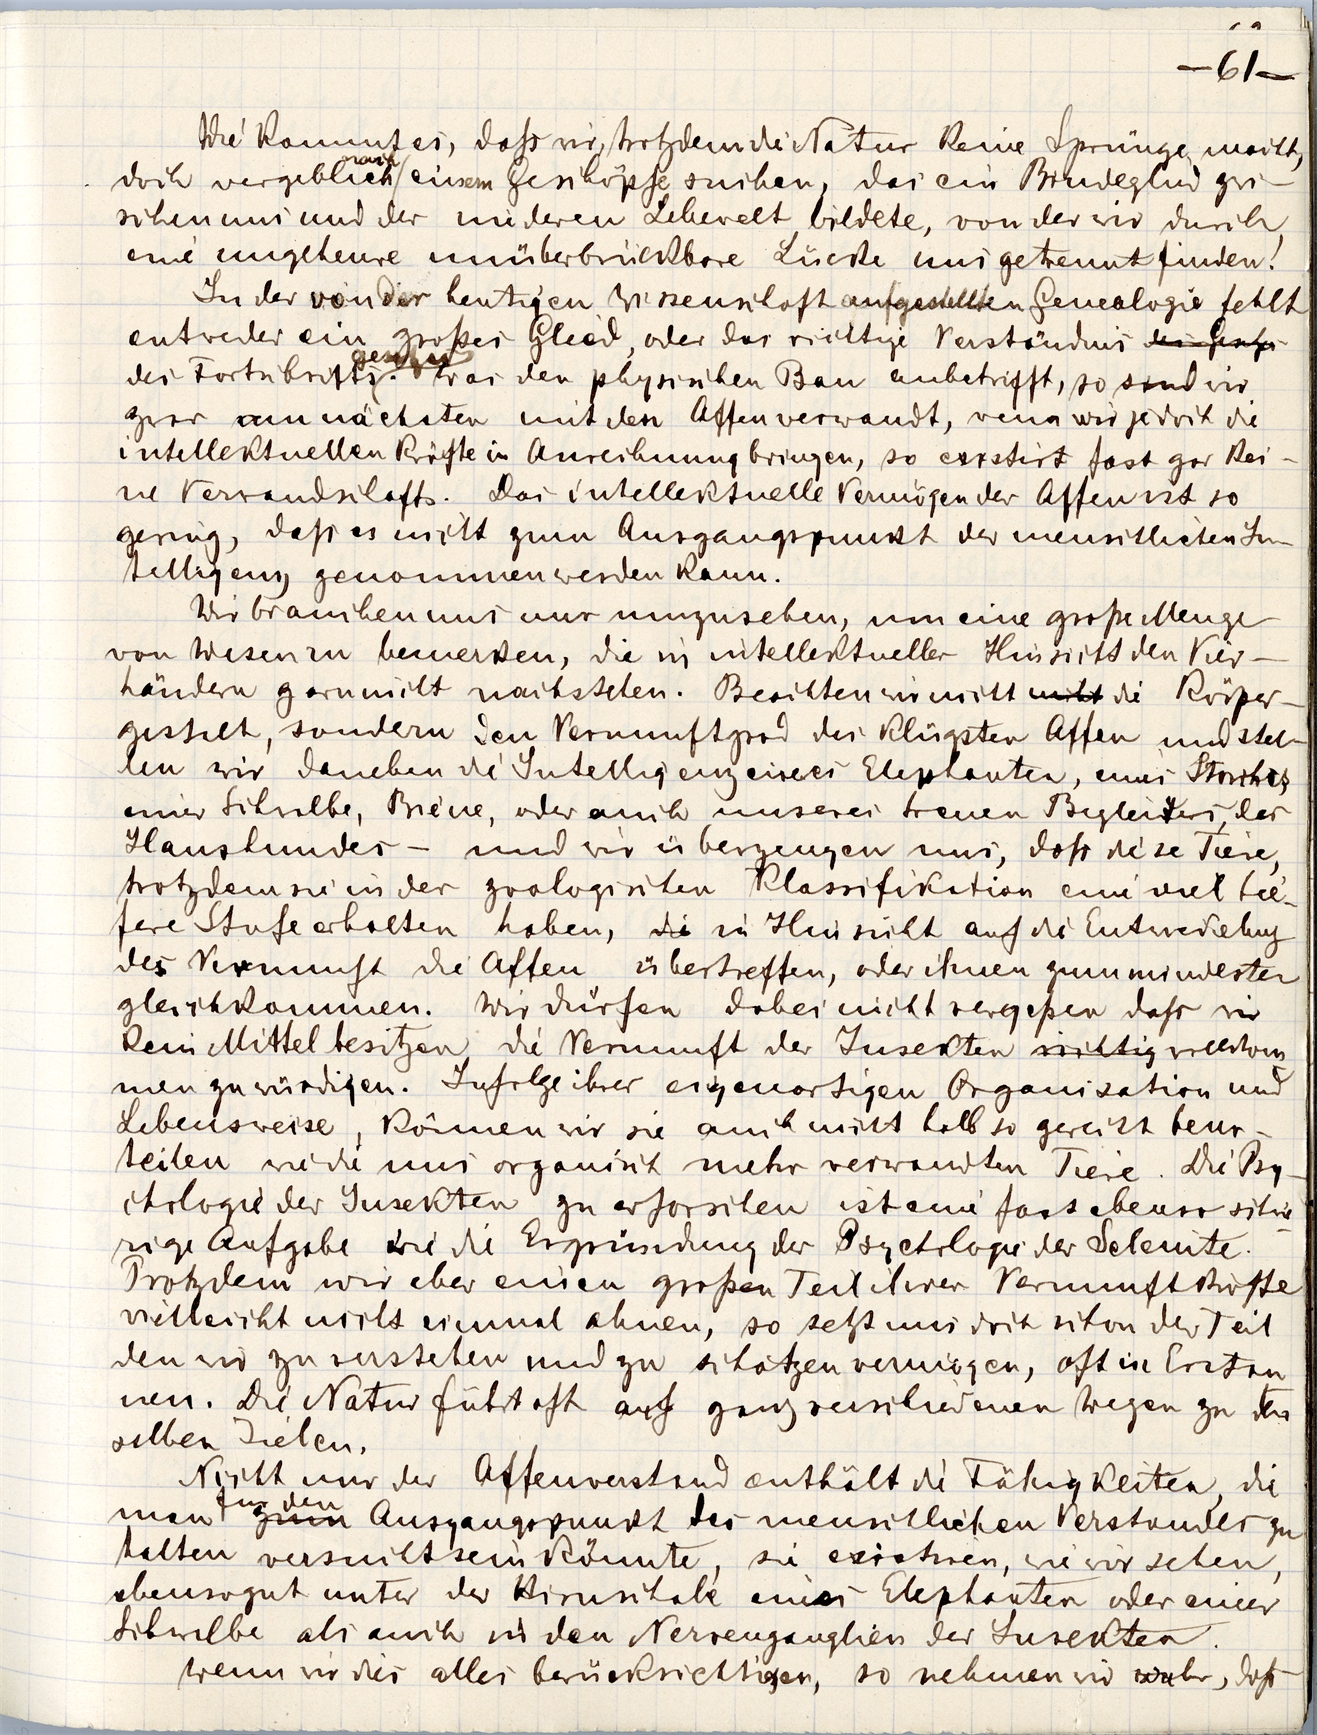 -61-
Wie kommt es, dass wir, trotzdem die Natur keine Sprünge macht,
doch vergeblich nach einem Geschöpfe suchen, das ein Bindeglied zwi-
schen uns und der niederen Lebewelt bildete, von der wir durch
eine ungeheure unüberbrückbare Lücke uns getrennt finden!
In der von der heutigen Wissenschaft aufgestellten Genealogie fehlt
entweder ein großes Glied, oder das richtige Verständnis des Ganges
des Fortschritts. Was den physischen Bau anbetrifft, so sind wir
zwar am nächsten mit den Affen verwandt, wenn wir jedoch die
intellektuellen Kräfte in Anrechnung bringen, so existirt fast gar kei-
ne Verwandschaft. Das intellektuelle Vermögen der Affen ist so
gering, daß es nicht zum Ausgangspunkt der menschlichen In-
telligenz genommen werden kann.
Wir brauchen uns nur umzusehen, um eine große Menge
von Wesen zu bemerken, die in intellektueller Hinsicht den Vier-
händern garnicht nachstehen. Beachten wir nicht nicht die Körper-
gestalt, sondern den Vernunftgrad des klügsten Affen und stel-
len wir daneben die Intelligenz eines Elephanten, eines Storches
einer Schwalbe, Biene, oder auch unseres treuen Begleiters, des
Haushundes - und wir überzeugen uns, daß diese Tiere,
trotzdem sie in der zoologischen Klassifikation eine viel tie-
fere Stufe erhalten haben, die in Hinsicht auf die Entwickelung
der Vernunft die Affen übertreffen, oder ihnen zum mindesten
gleichkommen. Wir dürfen dabei nicht vergeßen daß wir
kein Mittel besitzen die Vernunft der Insekten richtig vollkom
men zu würdigen. Infolge ihrer eigenartigen Organisation und
Lebensweise, können wir sie auch nicht halb so gerecht beur-
teilen wie die uns organisch mehr verwandten Tiere. Die Psy-
chologie der Insekten zu erforschen ist eine fast ebenso schwie-
rige Aufgabe wie die Ergründung der Psychologie der Selenite.
Trotzdem wir aber einen großen Teil ihrer Vernunftkräfte
vielleicht nicht einmal ahnen, so setzt uns doch schon der Teil
den wir zu verstehen und zu schätzen vermögen, oft in Erstau
nen. Die Natur führt oft auf ganz verschiedenen Wegen zu den
selben Zielen.
Nicht nur der Affenverstand enthält die Fähigkeiten, die
man für den zum Ausgangspunkt des menschlichen Verstandes zu
halten versucht sein könnte, sie existiren, wie wir sehen,
ebensogut unter der Hirnschale eines Elephanten oder einer
Schwalbe als auch in den Nervenganglien der Insekten.
Wenn wir dies alles berücksichtigen, so nehmen wir wahr, daß